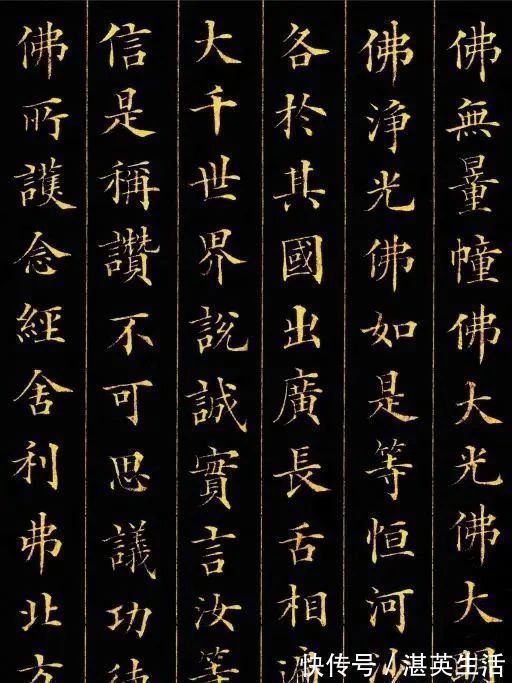 佛無量幢佛大光佛大明
佛淨光佛如是等恒河沙
各於其國出廣長舌相
大千世界說誠實言汝等
信是稱讚不可思議功德
佛所護念經舍利弗北方
快传号／湛英生活